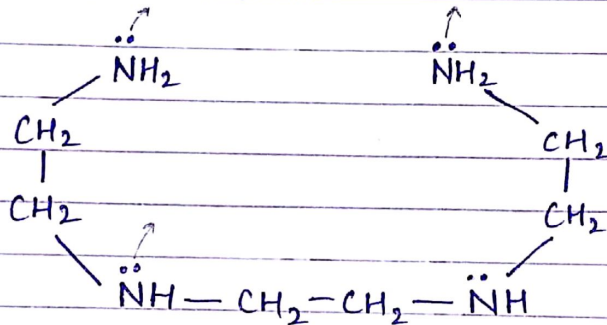 NH2 NH2
CH2 CH2
CH2 CH2
NH — CH2 – CH2 — NH